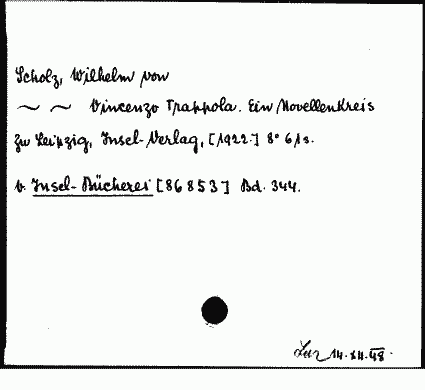 Scholz, Wilhelm von
~ ~ Vincenzo Trappola. Ein Novellenkreis
zu Leipzig, Insel-Verlag, [1922.] 8° 61 s.
b. Insel-Bücherei [86853] Bd. 344.